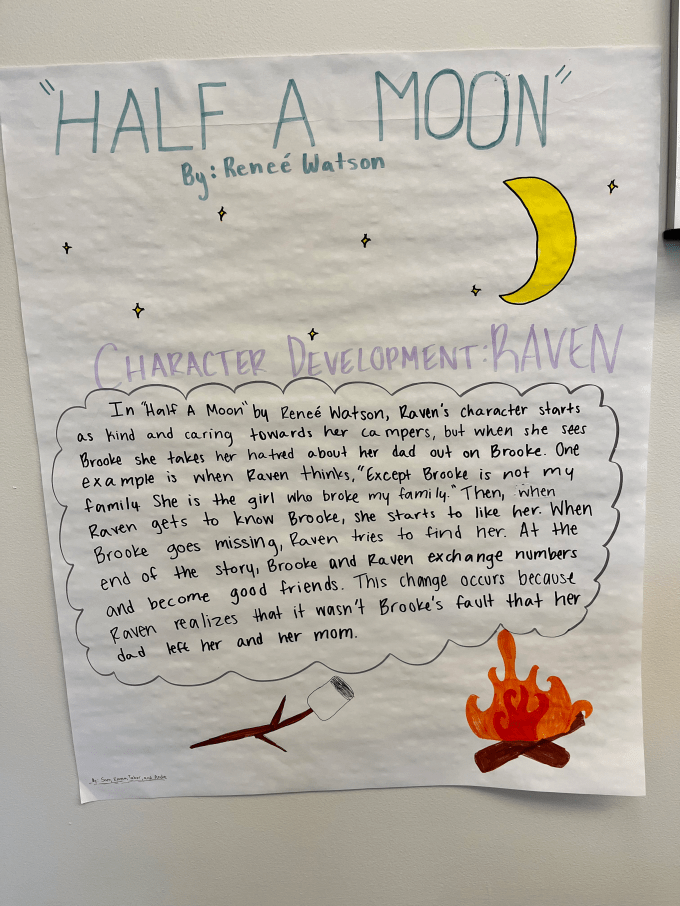 "HALF A MOON"
By: Reneé Watson
CHARACTER DEVELOPMENT: RAVEN
In "Half A Moon" by Reneé Watson, Raven's character starts
as kind and caring towards her campers, but when she sees
Brooke she takes her hatred about her dad out on Brooke. One
example is when Raven thinks, "Except Brooke is not my
family She is the girl who broke my family." Then, when
Raven gets to know Brooke, she starts to like her. When
Brooke goes missing, Raven tries to find her. At the
end of the story, Brooke and Raven exchange numbers
and become good friends. This change occurs because
Raven realizes that it wasn't Brooke's fault that her
dad left her and her mom.
By: and